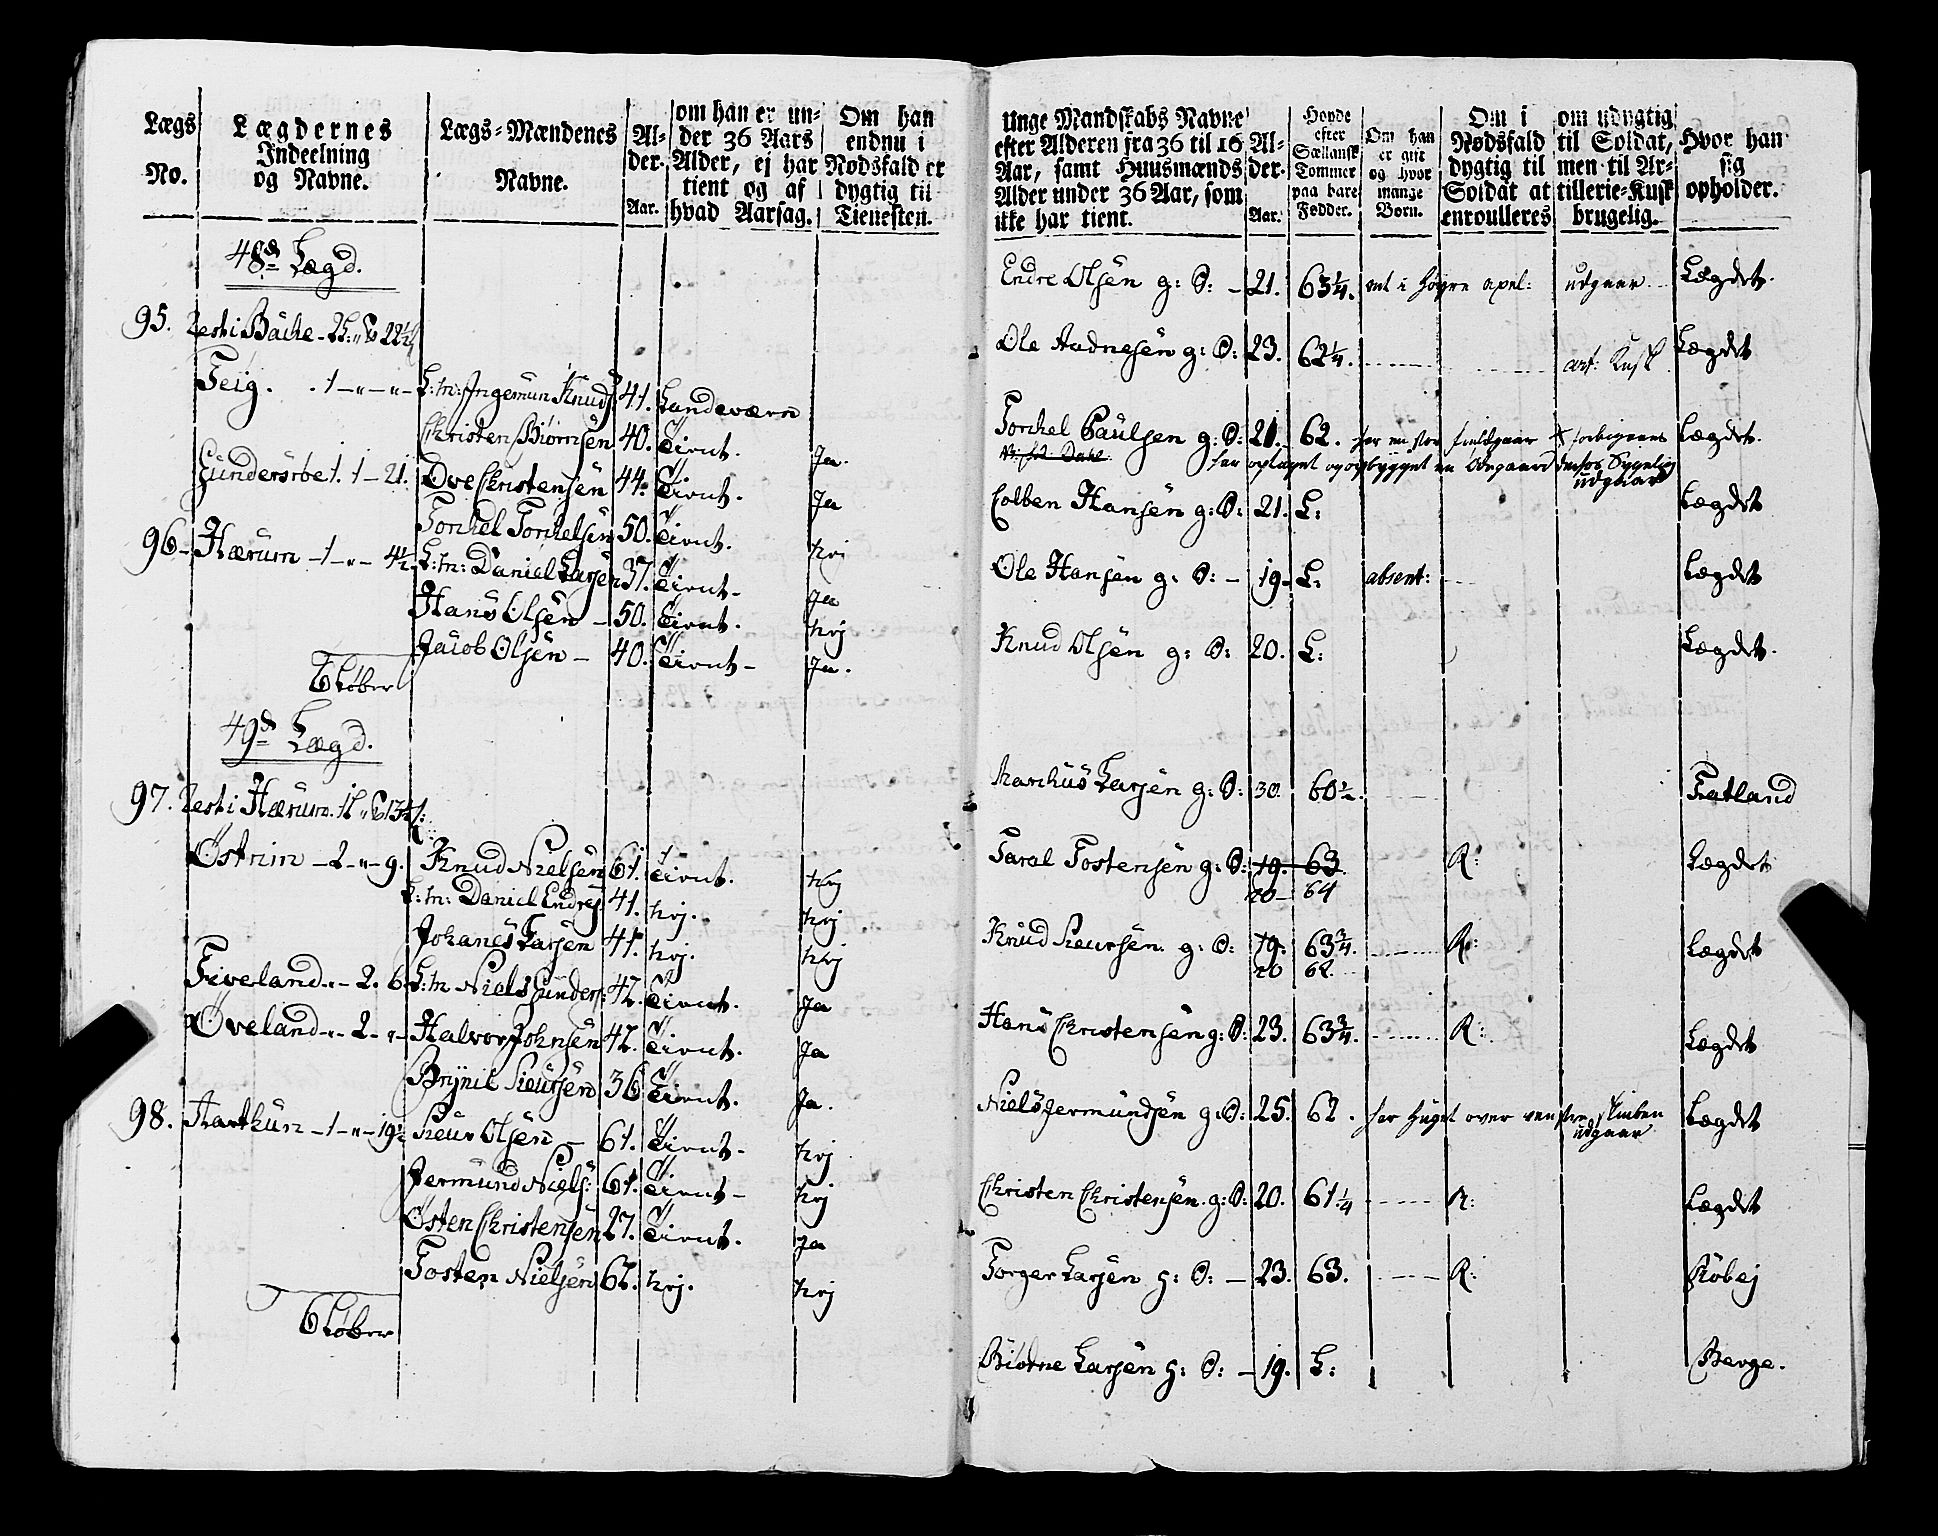 Lægs No.
Lægdernes Indeelning og Navne.
Lægs-Mændenes Navne.
Alder. Aar.
om han er under 36 Aars Alder, ej har tient og af hvad Aarsag.
Om han endnu i Nødsfald er dygtig til Tienesten.
48d Lægd.
95. Rest i Bache
Teig. 1 L:m: Ingemun Knuds 41. Landeværn
Christen Biørnsen 40. Tient. Ja.
1 - 21. Ove Christensen 44. Tient. Ja
Torchel Torchelsen 50. Tient. Nei
96 - Hærum - 1 - " - 4½ L:m: Daniel Larsen 37. Tient - Ja
Hans Olsen - 50. Tient. Nej
Jacob Olsen - 40. Tient - Ja.
6 Løber
49d Lægd.
97. Rest i Hærum
Østrim - 2 - " - 9. Knud Nielsen 61. Tient. Nej
L:m: Daniel Endres 41. Nej. Nej
Johanes Larsen 41. Nej. Nej
Fiveland - " - 2. 6 L:m Niels Gunders: 42. Tient. Ja
Øveland - " - 2. " - Halvor Johnsen 42. Tient. Ja
Brynil Sieursen 36 Tient. Ja.
98. Aarthun - 1 - " - 19½ Sieur Olsen - 61. Tient - Nej
Jermund Niels: 61. Tient - Nej
Østen Christensen 27. Tient. Ja
Tosten Nielsen 62. Nej. Nej
6 Løber
Unge Mandskabs Navne efter Alderen fra 36 til 16 Aar, samt Huusmænds Alder under 36 Aar, som ikke har tient.
Alder. Aar.
Høyde efter Siællansk Tommer paa bare Fødder.
Om han er gift og hvor mange Børn.
Om i Nødsfald dygtig til Soldat at enroulleres
om udygtig til Soldat, men til Artillerie-Kusk brugelig.
Hvor han sig opholder.
Endre Olsen g: S: - 21. 63¼. udgaar Lægdet.
Ole Aadnesen g: S: 23. 62¼. art: Kusk Lægdet
Torchel Paulsen g: S: 21. 62. Lægdet.
har optaget og opbygget en Ødegaard
udgaar
Colben Hansen g: S: 21. L: Lægdet
Ole Hansen g: S: - 19 - L: absent: Lægdet
Knud Olsen g: S: 20. L: Lægdet.
Marchus Larsen g: S: 30. 60½ Fatland
Taral Tostensen g: S: 19. 63. R: Lægdet
20 - 64
Knud Sieursen. g: S: 19. 63¾ R: Lægdet
20 62.
Hans Christensen g: S: 23. 63¾. R: Lægdet
Niels Jermundsen g: S: 25. 62. har hugget over venstre Lægdet
udgaar
Christen Christensen. g: S: 20. 61¼ R: Lægdet
Torger Larsen h: S: - 23. 63. R:
Biødne Larsen h: S: - 19. L: Berge.